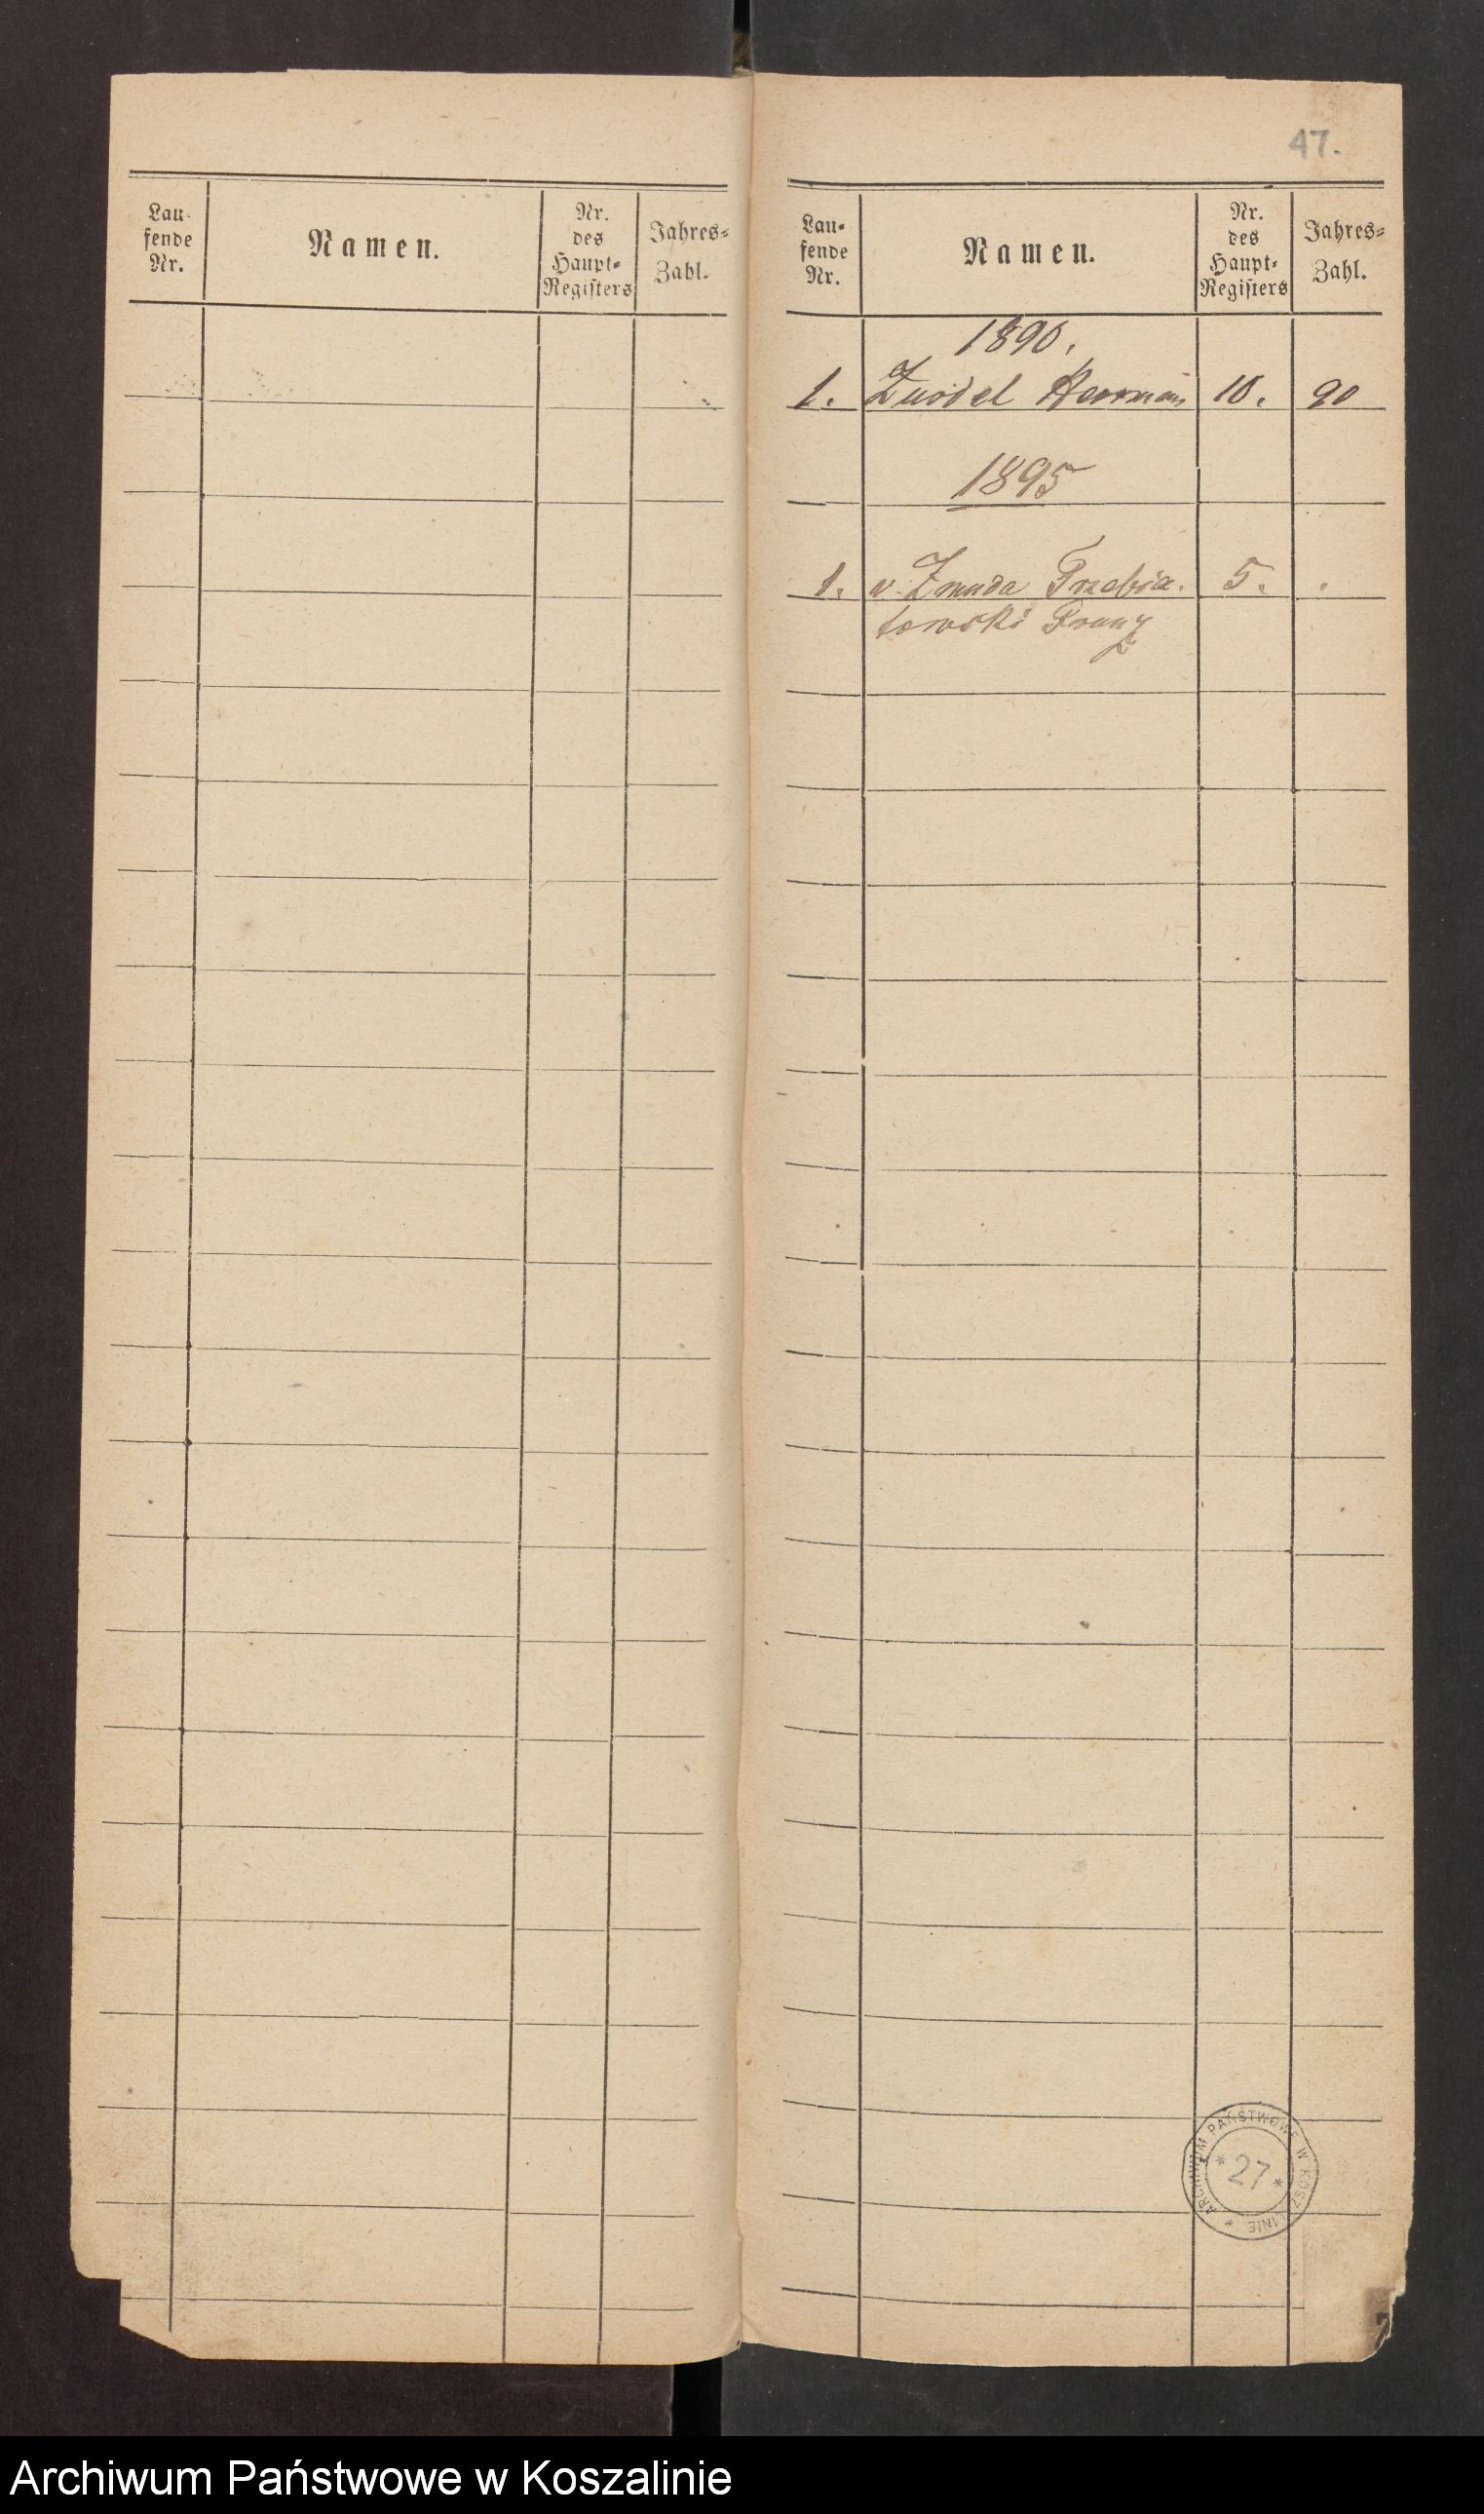 47.
Lau-
fende
Nr.
Namen.
Nr.
des
Haupt-
Registers
Jahres-
Zahl.
Lau-
fende
Nr.
Namen.
Nr.
des
Haupt-
Registers
Jahres-
Zahl.
1890.
1. Hermann 10. 90
1895
1. v. Zmuda Trzebia- 5. .
towski Franz
ARCHIWUM PAŃSTWOWE W KOSZALINIE
* 27 *
Archiwum Państwowe w Koszalinie